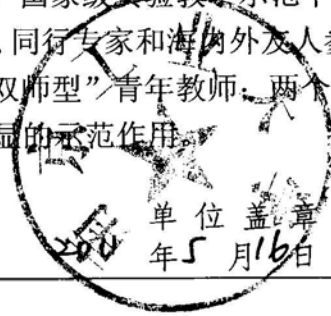 国家级实验教学示范中
同行专家和海内外友人参
双师型”青年教师；两个
显的示范作用。
单位盖章
年5月16日